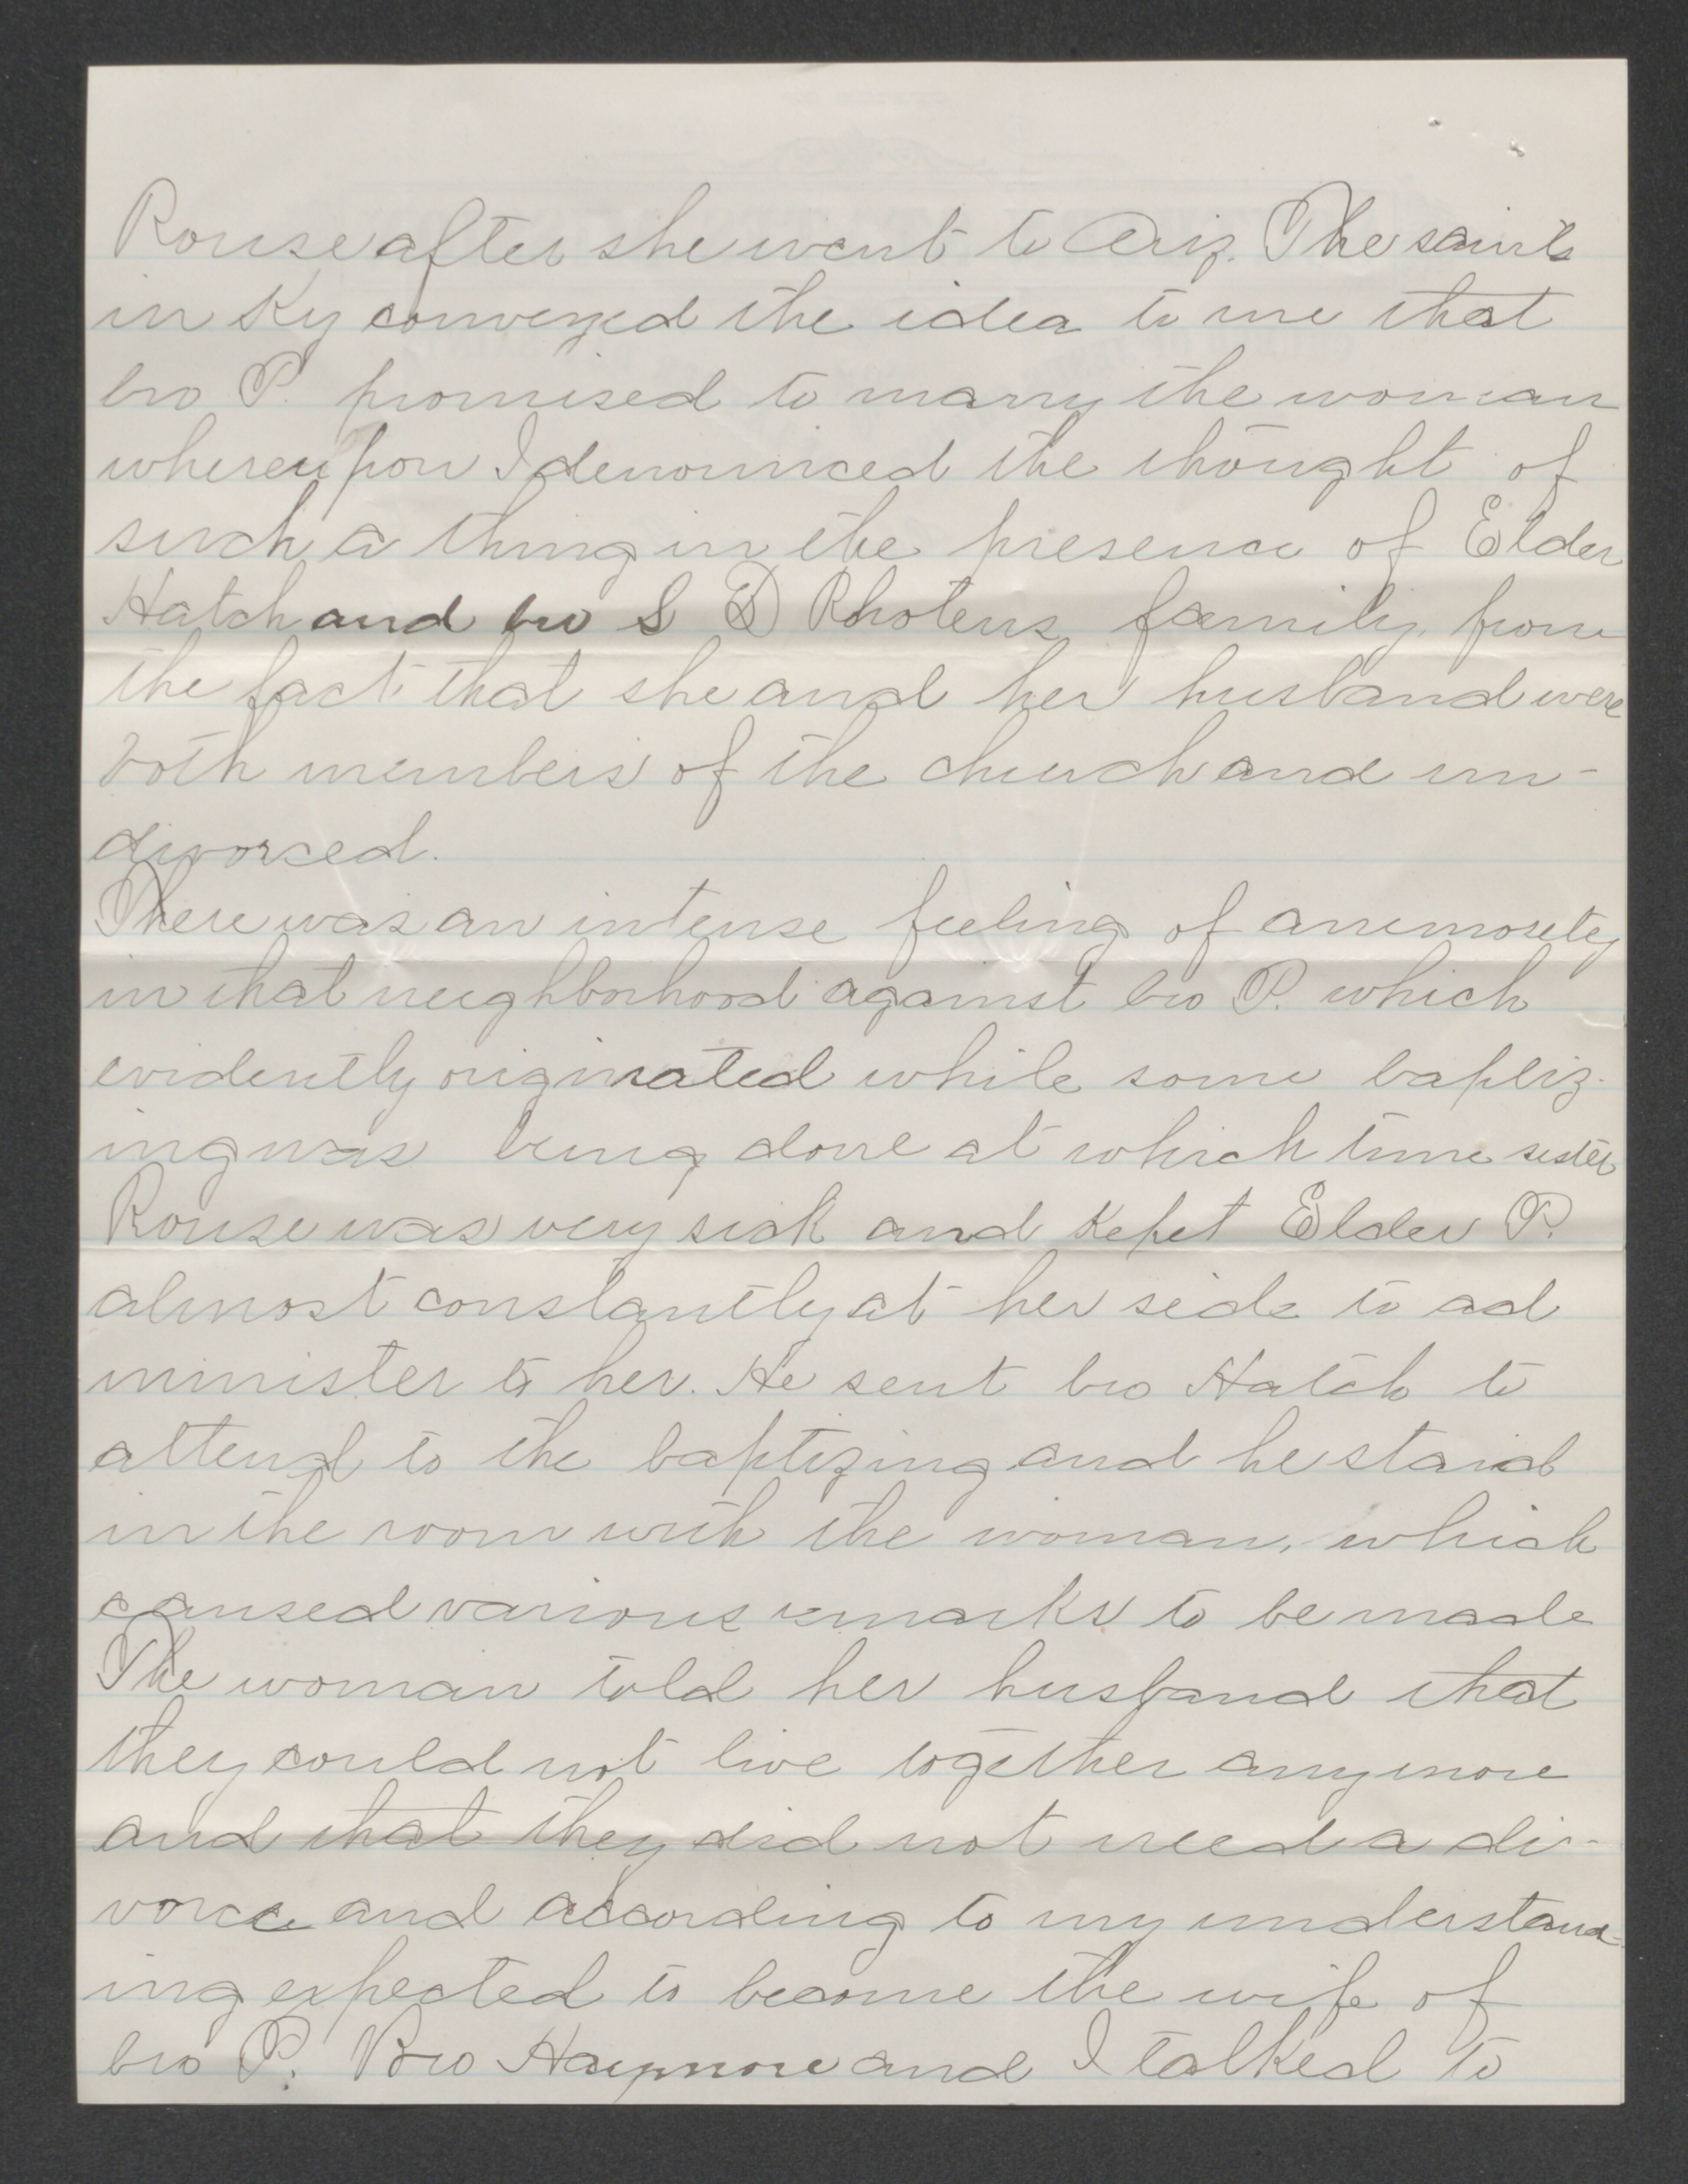 Rouse after she went to Ariz. The saints
in Ky conveyed the idea to me that
bro P. promised to marry the woman
whereupon I denounced the thought of
such a thing in the presence of Elder
Hatch and bro S D Rhotens family, from
the fact that she and her husband were
both members of the church and un-
divorced.
There was an intense feeling of annemosety
in that neighborhood against bro P. which
evidently originated while some baptiz-
ing was being done at which time sister
Rouse was very sick and kepet Elder P.
almost constantly at her side to ad
minister to her. He sent bro Hatch to
attend to the baptizing and he staid
in the room with the woman, which
caused various remarks to be made
The woman told her husband that
they could not live together anymore
and that they did not need a di-
vorce and according to my understand-
ing expected to become the wife of
bro P. Bro Haymore and I talked to